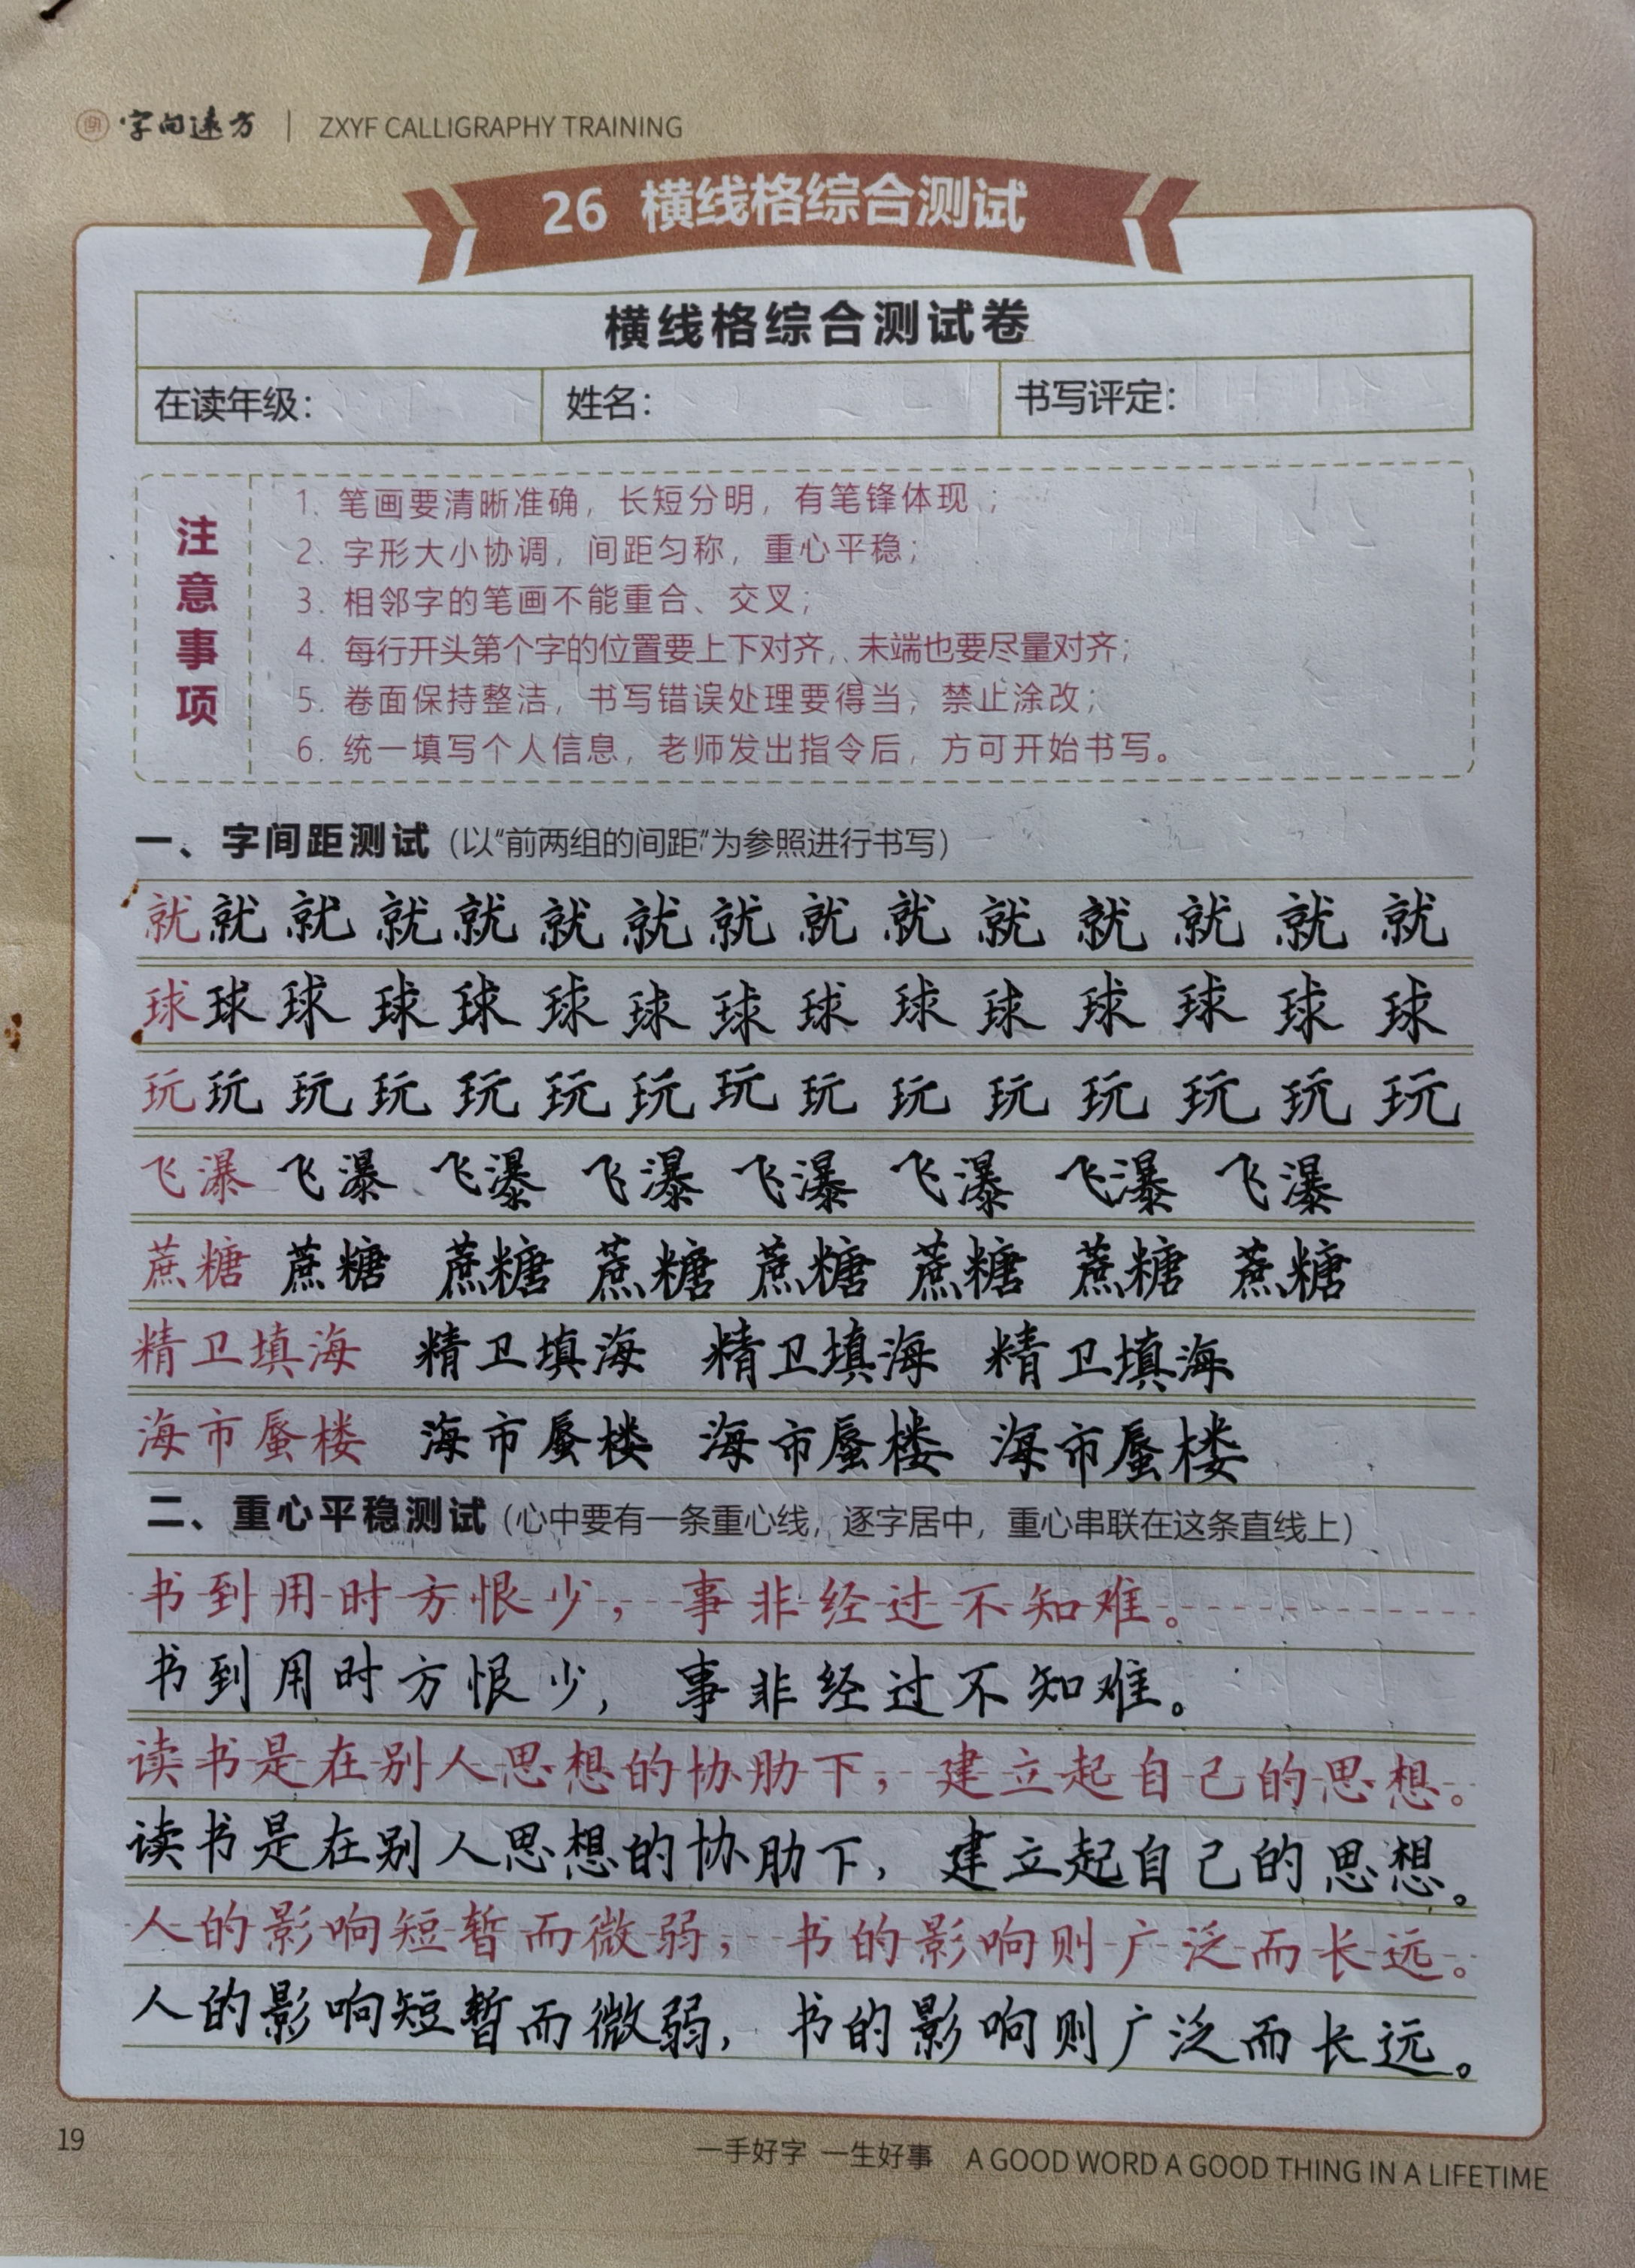 字间远方 | ZXYF CALLIGRAPHY TRAINING
26 横线格综合测试
横线格综合测试卷
在读年级: 姓名: 书写评定:
注意事项
1. 笔画要清晰准确, 长短分明, 有笔锋体现;
2. 字形大小协调, 间距匀称, 重心平稳;
3. 相邻字的笔画不能重合、交叉;
4. 每行开头第个字的位置要上下对齐, 末端也要尽量对齐;
5. 卷面保持整洁, 书写错误处理要得当, 禁止涂改;
6. 统一填写个人信息, 老师发出指令后, 方可开始书写。
一、字间距测试 (以“前两组的间距”为参照进行书写)
就就就就就就就就就就就就就就就
球球球球球球球球球球球球球球球
玩玩玩玩玩玩玩玩玩玩玩玩玩玩玩
飞瀑 飞瀑 飞瀑 飞瀑 飞瀑 飞瀑 飞瀑 飞瀑
蔗糖 蔗糖 蔗糖 蔗糖 蔗糖 蔗糖 蔗糖 蔗糖
精卫填海 精卫填海 精卫填海 精卫填海
海市蜃楼 海市蜃楼 海市蜃楼 海市蜃楼
二、重心平稳测试 (心中要有一条重心线, 逐字居中, 重心串联在这条直线上)
书到用时方恨少, 事非经过不知难。
书到用时方恨少, 事非经过不知难。
读书是在别人思想的协助下, 建立起自己的思想。
读书是在别人思想的协助下, 建立起自己的思想。
人的影响短暂而微弱, 书的影响则广泛而长远。
人的影响短暂而微弱, 书的影响则广泛而长远。
19
一手好字 一生好事 A GOOD WORD A GOOD THING IN A LIFETIME